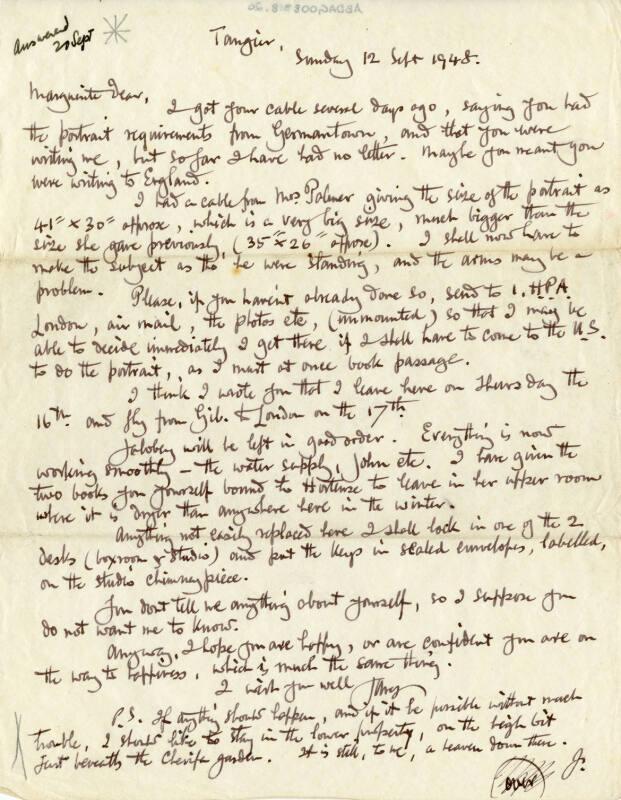 ABDAG008818.20
answered
20 Sept
Tangier,
Sunday 12 Sept 1948.
Marguerite dear,
I got your cable several days ago, saying you had
the portrait requirements from Germantown, and that you were
writing me, but so far I have had no letter. Maybe you meant you
were writing to England.
I had a cable from Mrs Palmer giving the size of the portrait as
41" x 30" approx, which is a very big size, much bigger than the
size she gave previously, (35" x 26" approx). I shall now have to
make the subject as tho' he were standing, and the arms may be a
problem.
Please, if you haven't already done so, send to 1. H.P.A.
London, air mail, the photos etc, (unmounted) so that I may be
able to decide immediately I get there if I shall have to come to the U.S.
to do the portrait, as I must at once book passage.
I think I wrote you that I leave here on Thursday the
16th and fly from Gib. to London on the 17th.
Jalobey will be left in good order. Everything is now
working smoothly – the water supply, John etc. I have given the
two books you yourself bound to Hortense to leave in her upper room
where it is dryer than anywhere here in the winter.
Anything not easily replaced here I shall lock in one of the 2
desks (boxroom & studio) and put the keys in sealed envelopes, labelled,
on the studio chimneypiece.
You don't tell me anything about yourself, so I suppose you
do not want me to know.
Anyway, I hope you are happy, or are confident you are on
the way to happiness, which is much the same thing.
I wish you well James
P.S. If anything should happen, and if it be possible without much
trouble, I should like to stay in the lower property, on the high bit
just beneath the Cherifa garden. It is still, to me, a heaven down there.
J.
over